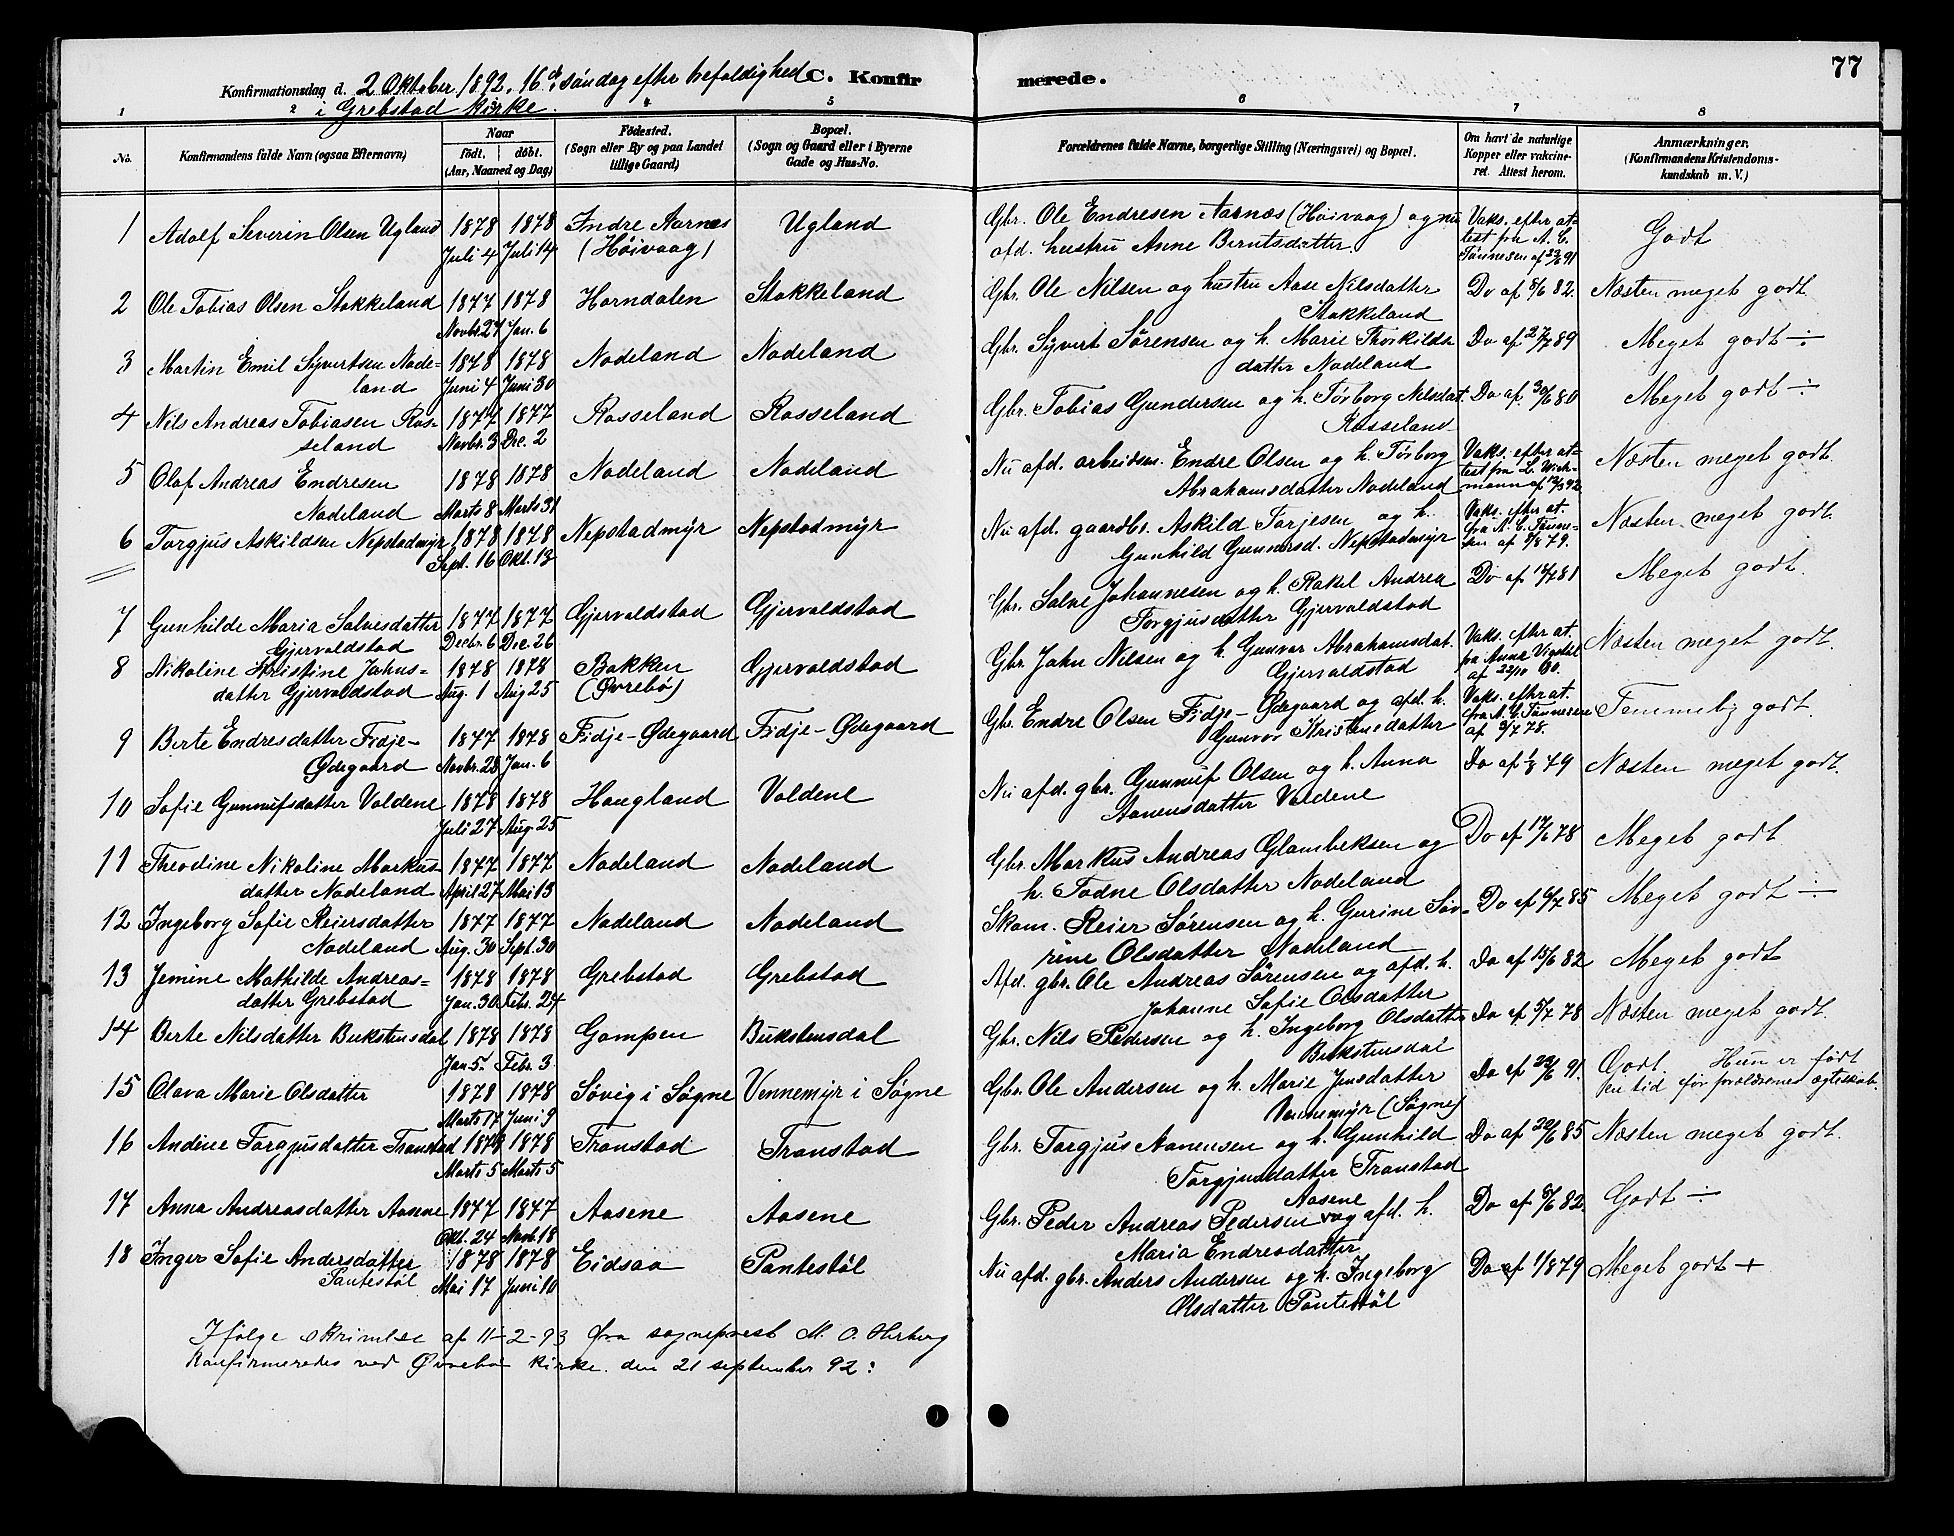 77
Konfirmationsdag d. 2 Oktober 1892. 16de søndag efter trefoldighed C. Konfirmerede.
i Grebstad kirke.
1 2 4 5 6 7 8
No. Konfirmandens fulde Navn (ogsaa Efternavn) Naar født, døbt. (Aar, Maaned og Dag) Fødested. (Sogn eller By og paa Landet tillige Gaard) Bopæl. (Sogn og Gaard eller i Byerne Gade og Hus-No. Forældrenes fulde Navne, borgerlige Stilling (Næringsvei) og Bopæl. Om havt de naturlige Kopper eller vakcineret. Attest herom. Anmærkninger. (Konfirmandens Kristendomskundskab m. V.)
1 Adolf Severin Olsen Ugland 1878 1878 Indre Aarnæs Ugland Gbr. Ole Endresen Aarnæs (Høivaag) og nu Vaks. efter at-
Juli 4 Juli 14 (Høivaag) afd. hustru Anne Berntsdatter. test fra A. C. Godt
Tønnesen af 22/6 91
2 Ole Tobias Olsen Stokkeland 1877 1878 Horndalen Stokkeland Gbr. Ole Nilsen og hustru Aase Nilsdatter Do af 8/6 82. Næsten meget godt.
Novbr. 27 Jan. 6 Stokkeland
3 Martin Emil Syvertsen Node- 1878 1878 Nodeland Nodeland Gbr. Syvert Sørensen og h. Marie Thorkilds- Do af 27/7 89 Meget godt ÷
land Juni 4 Juni 30 datter Nodeland
4 Nils Andreas Tobiasen Ros- 1877 1877 Rosseland Rosseland Gbr. Tobias Gundersen og h. Tørborg Nilsdat. Do af 30/6 80 Meget godt ÷
seland Novbr. 3 Dec. 2 Rosseland
5 Olaf Andreas Endresen 1878 1878 Nodeland Nodeland Nu afd. arbeidsm. Endre Olsen og h. Tørborg Vaks. efter at- Næsten meget godt.
Nodeland Marts 8 Marts 31 Abrahamsdatter Nodeland test fra L. Wich-
mann af 12/3 92
6 Torgjus Askildsen Nepstadmyr 1878 1878 Nepstadmyr Nepstadmyr Nu afd. gaardbr. Askild Torjesen og h. Vaks. efter at. Næsten meget godt.
Sept. 16 Okt. 13 Gunhild Gunnarsd. Nepstadmyr fra A. C. Tønne-
sen af 8/8 79.
7 Gunhilde Maria Salvesdatter 1877 1877 Gjervoldstad Gjervoldstad Gbr. Salve Johannesen og h. Rakel Andrea Do af 14/7 81 Meget godt.
Gjervoldstad Decbr. 6 Dec. 26 Torgjusdatter Gjervoldstad
8 Nikoline Kristine Jahns- 1878 1878 Bakken Gjervoldstad Gbr. Jahn Nilsen og h. Gunvor Abrahamsdat. Vaks. efter at. Næsten meget godt.
datter Gjervoldstad Aug. 1 Aug 25 (Øvrebø) Gjervoldstad fra Anna
af 22/10
9 Berte Endresdatter Fidje- 1877 1878 Fidje-Ødegaard Fidje-Ødegaard Gbr. Endre Olsen Fidje-Ødegaard og afd. h. Vaks. efter at. Temmelig godt.
Ødegaard Novbr. 28 Jan. 6 Gunvor Kristensdatter fra A. C. Tønnesen
af 9/7 78.
10 Sofie Gunnufsdatter Voldene 1878 1878 Haugland Voldene Nu afd. gbr. Gunnuf Olsen og h. Anna Do af 1/8 79 Næsten meget godt.
Juli 27 Aug. 25 Aanensdatter Voldene
11 Theodine Nikoline Markus- 1877 1877 Nodeland Nodeland Gbr. Markus Andreas Glambeksen og Do af 17/6 78 Meget godt
datter Nodeland April 27 Mai 13 h. Todne Olsdatter Nodeland
12 Ingeborg Sofie Reiersdatter 1877 1877 Nodeland Nodeland Skom. Reier Sørensen og h. Gurine Søv- Do af 6/7 85 Meget godt ÷
Nodeland Aug. 30 Sept. 30 rine Olsdatter Nodeland
13 Jemine Mathilde Andreas- 1878 1878 Grebstad Grebstad Afd. gbr. Ole Andreas Sørensen og afd. h. Do af 15/6 82 Meget godt
datter Grebstad Jan. 30 Febr. 24 Johanne Sofie Olsdatter
14 Berte Nilsdatter Bukstensdal 1878 1878 Gompen Bukstensdal Gbr. Nils Pedersen og h. Ingeborg Olsdatter Do af 5/7 78 Næsten meget godt.
Jan 5. Febr. 3. Bukstensdal
15 Olava Marie Olsdatter 1878 1878 Søvig i Søgne Vennemyr i Søgne Gbr. Ole Andersen og h. Marie Jensdatter Do af 22/6 91. Godt. Hun er født
Marts 17 Juni 9 Vennemyr (Søgne) en tid før forældrenes ægteskab.
16 Andine Torgjusdatter Tronstad 1878 1878 Tronstad Tronstad Gbr. Torgjus Aanensen og h. Gunhild Do af 22/6 85 Næsten meget godt.
Marts 5 Marts 5 Torgjusdatter Tronstad
17 Anna Andreasdatter Aasene 1877 1877 Aasene Aasene Gbr. Peder Andreas Pedersen Aasene og afd. h. Do af 8/6 82. Godt ÷
Okt. 24 Novb. 18 Maria Endresdatter
18 Inger Sofie Andersdatter 1878 1878 Eidsaa Pantestøl Nu afd. gbr. Anders Andersen og h. Ingeborg Do af 1/8 79 Meget godt +
Pantestøl Mai 17 Juni 10 Olsdatter Pantestøl
Ifølge skrivelse af 11-2-93 fra sogneprest M. O. Herberg
Konfirmeredes ved Øvrebø kirke den 21 september 92: